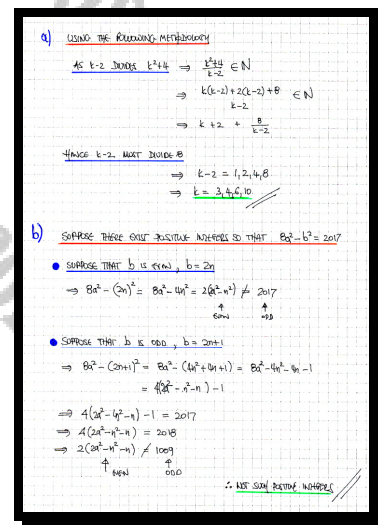 a) USING THE FOLLOWING METHODOLOGY
AS k-2 DIVIDES k²+4 ⇒ (k²+4)/(k-2) ∈ ℕ
⇒ (k(k-2)+2(k-2)+8)/(k-2) ∈ ℕ
⇒ k + 2 + 8/(k-2)
HENCE k-2 MUST DIVIDE 8
⇒ k-2 = 1,2,4,8
⇒ k = 3,4,6,10
b) SUPPOSE THERE EXIST POSITIVE INTEGERS SO THAT 8a²-b² = 2017
● SUPPOSE THAT b IS EVEN, b = 2n
⇒ 8a² - (2n)² = 8a² - 4n² = 2(4a²-n²) ≠ 2017
↑ ↑
EVEN ODD
● SUPPOSE THAT b IS ODD, b = 2n+1
⇒ 8a² - (2n+1)² = 8a² - (4n²+4n+1) = 8a² - 4n² - 4n - 1
= 4(2a² - n² - n) - 1
⇒ 4(2a² - n² - n) - 1 = 2017
⇒ 4(2a² - n² - n) = 2018
⇒ 2(2a² - n² - n) ≠ 1009
↑ ↑
EVEN ODD
∴ NOT SUCH POSITIVE INTEGERS